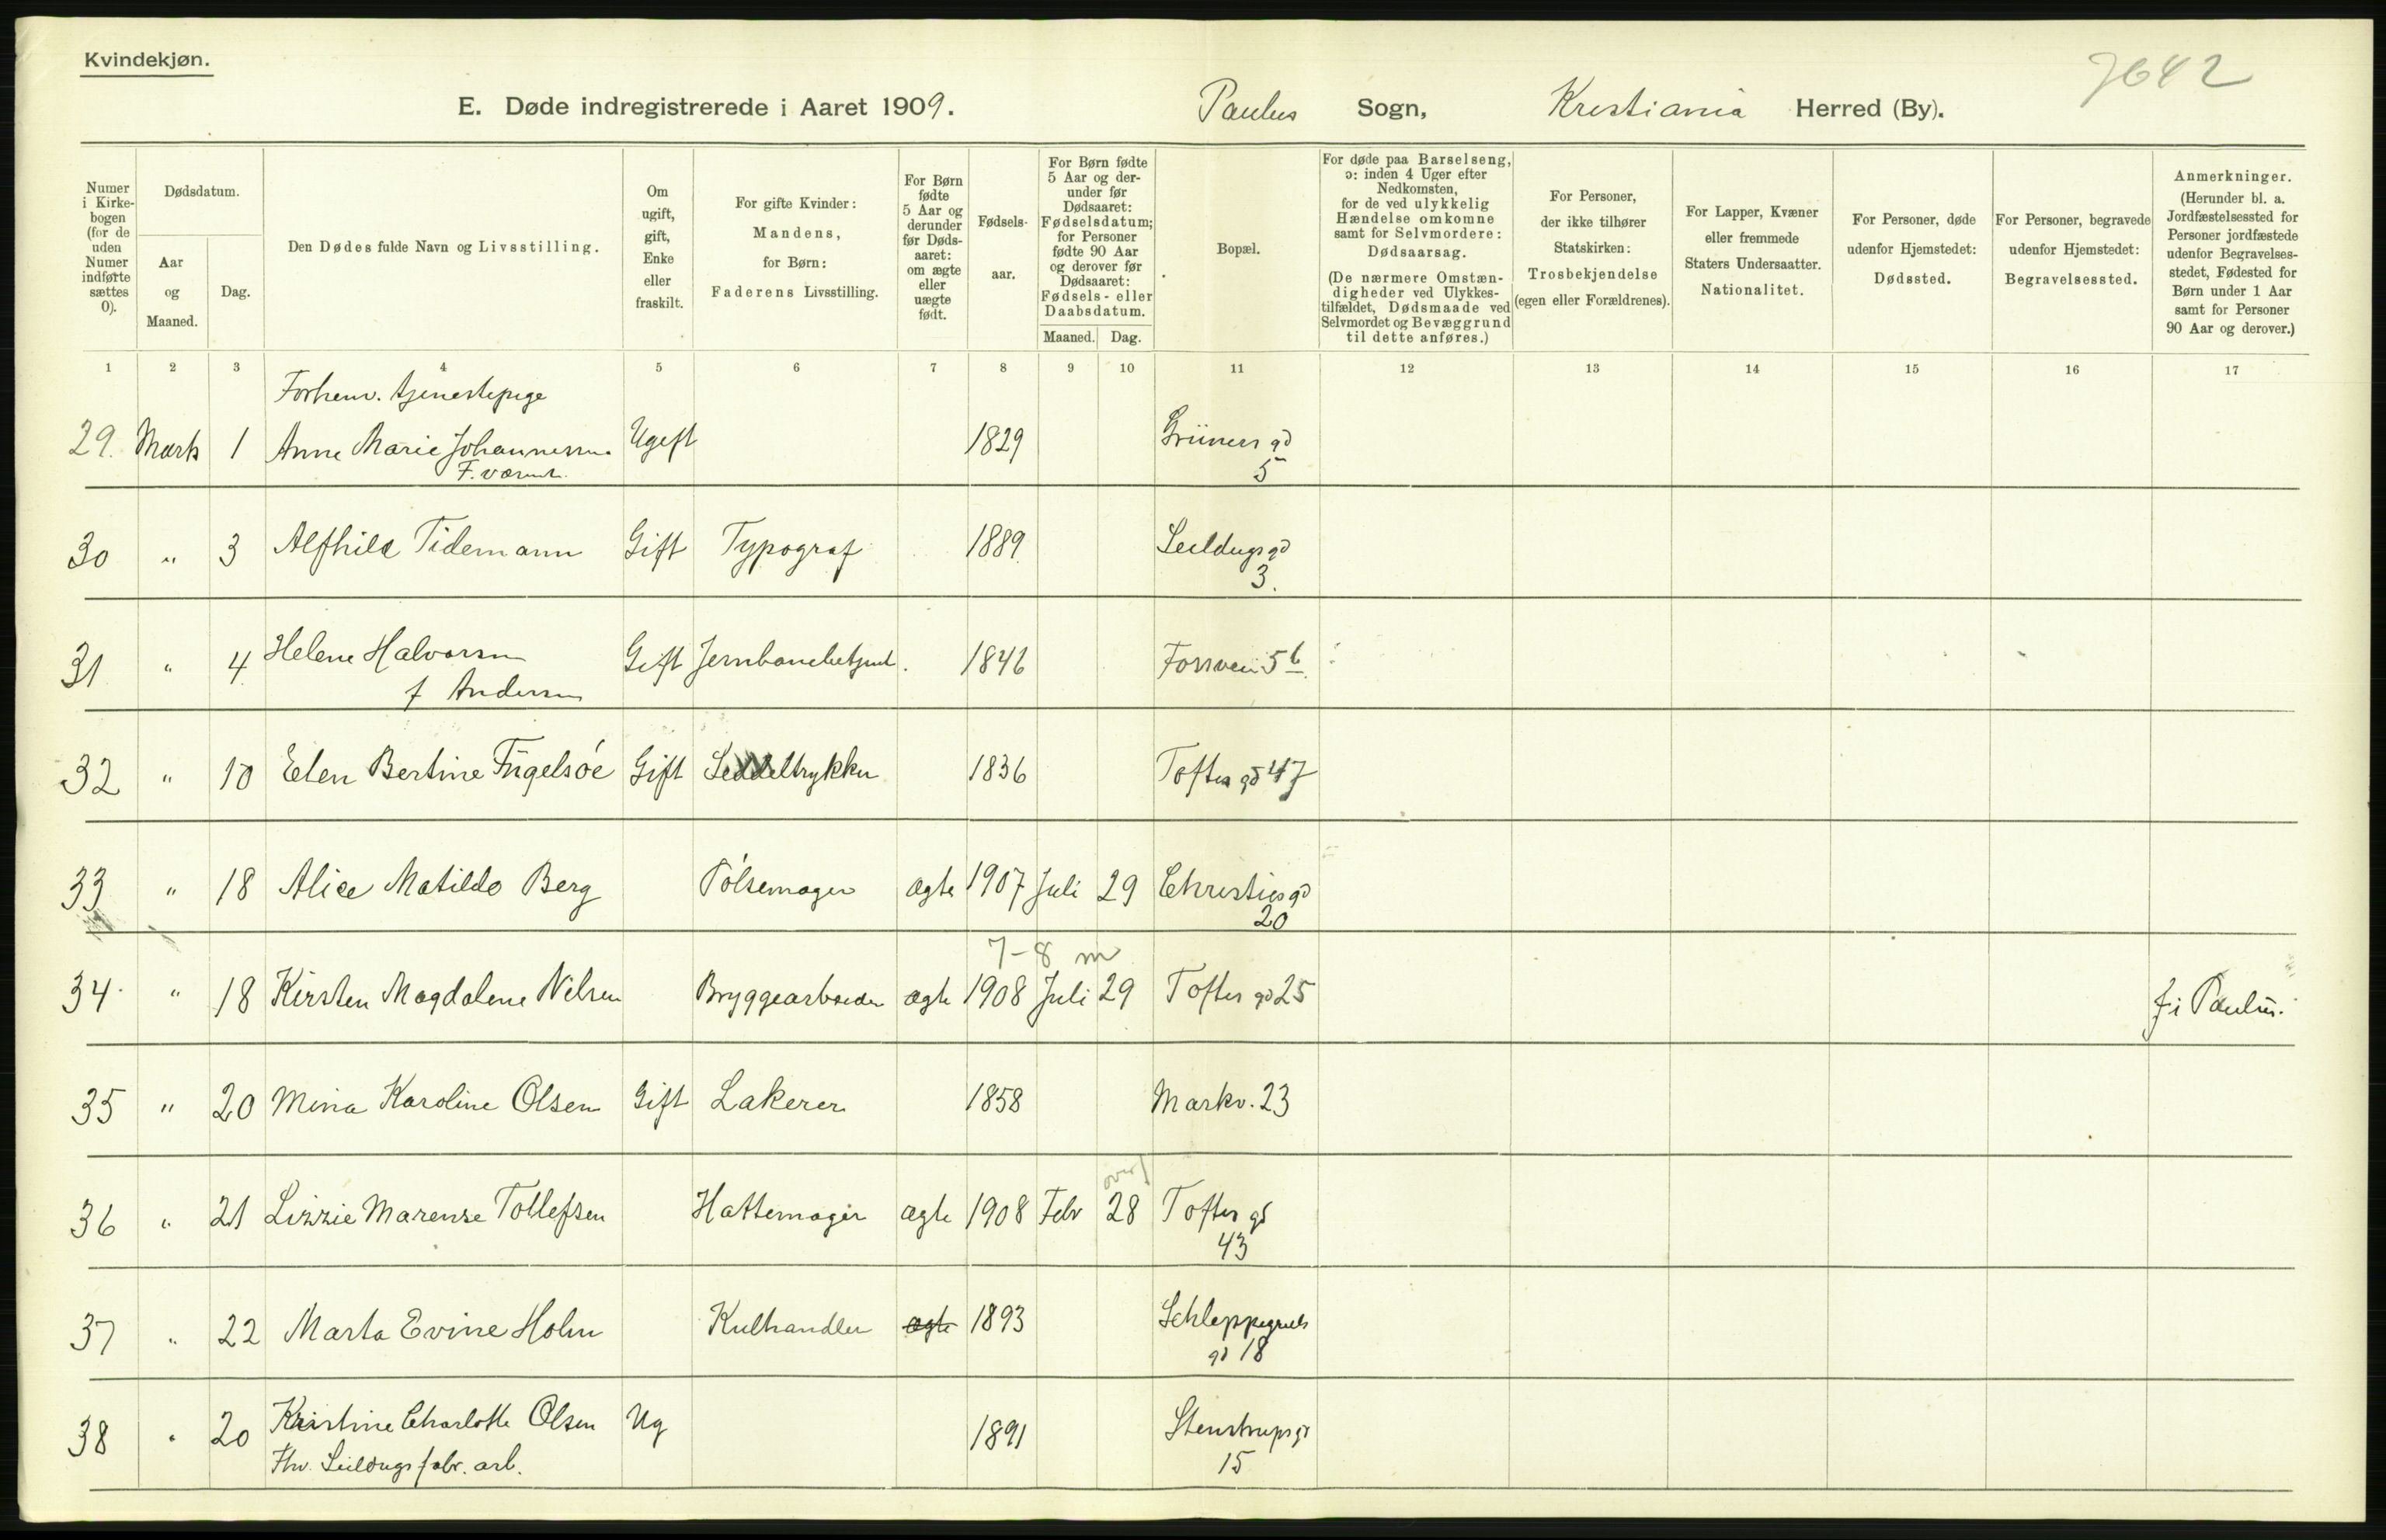 Kvindekjøn.
7642
E. Døde indregistrerede i Aaret 1909. Paulus Sogn, Kristiania Herred (By).
Numer i Kirkebogen (for de uden Numer indførte sættes 0).
Dødsdatum.
Aar og Maaned.
Dag.
Den Dødes fulde Navn og Livsstilling.
Om ugift, gift, Enke eller fraskilt.
For gifte Kvinder: Mandens, for Børn: Faderens Livsstilling.
For Børn fødte 5 Aar og derunder før Dødsaaret: om ægte eller uægte født.
Fødselsaar.
For Børn fødte 5 Aar og derunder før Dødsaaret: Fødselsdatum; for Personer fødte 90 Aar og derover før Dødsaaret: Fødsels- eller Daabsdatum.
Maaned. Dag.
Bopæl.
For døde paa Barselseng, ɔ: inden 4 Uger efter Nedkomsten, for de ved ulykkelig Hændelse omkomne samt for Selvmordere: Dødsaarsag.
(De nærmere Omstændigheder ved Ulykkestilfældet, Dødsmaade ved Selvmordet og Bevæggrund til dette anføres.)
For Personer, der ikke tilhører Statskirken: Trosbekjendelse (egen eller Forældrenes).
For Lapper, Kvæner eller fremmede Staters Undersaatter. Nationalitet.
For Personer, døde udenfor Hjemstedet: Dødssted.
For Personer, begravede udenfor Hjemstedet: Begravelsessted.
Anmerkninger. (Herunder bl. a. Jordfæstelsessted for Personer jordfæstede udenfor Begravelsesstedet, Fødested for Børn under 1 Aar samt for Personer 90 Aar og derover.)
1 2 3 4 5 6 7 8 9 10 11 12 13 14 15 16 17
Forhenv. tjenestepige
29. Marts 1 Anne Marie Johannessen Ugift 1829 Grüners gd
F. værnet. 5
30 " 3 Alfhild Tidemann Gift Typograf 1889 Seildugsgd
3.
31 " 4 Helene Halvorsen Gift Jernbanebetjent. 1846 Forsvein 5 b
f Andersen
32 " 10 Elen Bertine Fügelsöe Gift Seddeltrykker 1836 Toftes gd 47
33 " 18 Alice Matilde Berg Pölsemager ægte 1907 Juli 29 Christies gd
20
7-8 m
34 " 18 Kirsten Magdalene Nilsen Bryggearbeider ægte 1908 Juli 29 Toftes gd 25 f i Paulus.
35 " 20 Mina Karoline Olsen Gift Lakerer 1858 Markv. 23
over
36 " 21 Lizzie Marense Tollefsen Hattemager ægte 1908 Febr 28 Toftes gd
43
37 " 22 Marta Evine Holm Kulhandler ægte 1893 Schleppegrels
gd 18
38 " 20 Kristine Charlotte Olsen Ug 1891 Stenstrupsgd
Fhv. Seildugsfabr. arb. 15